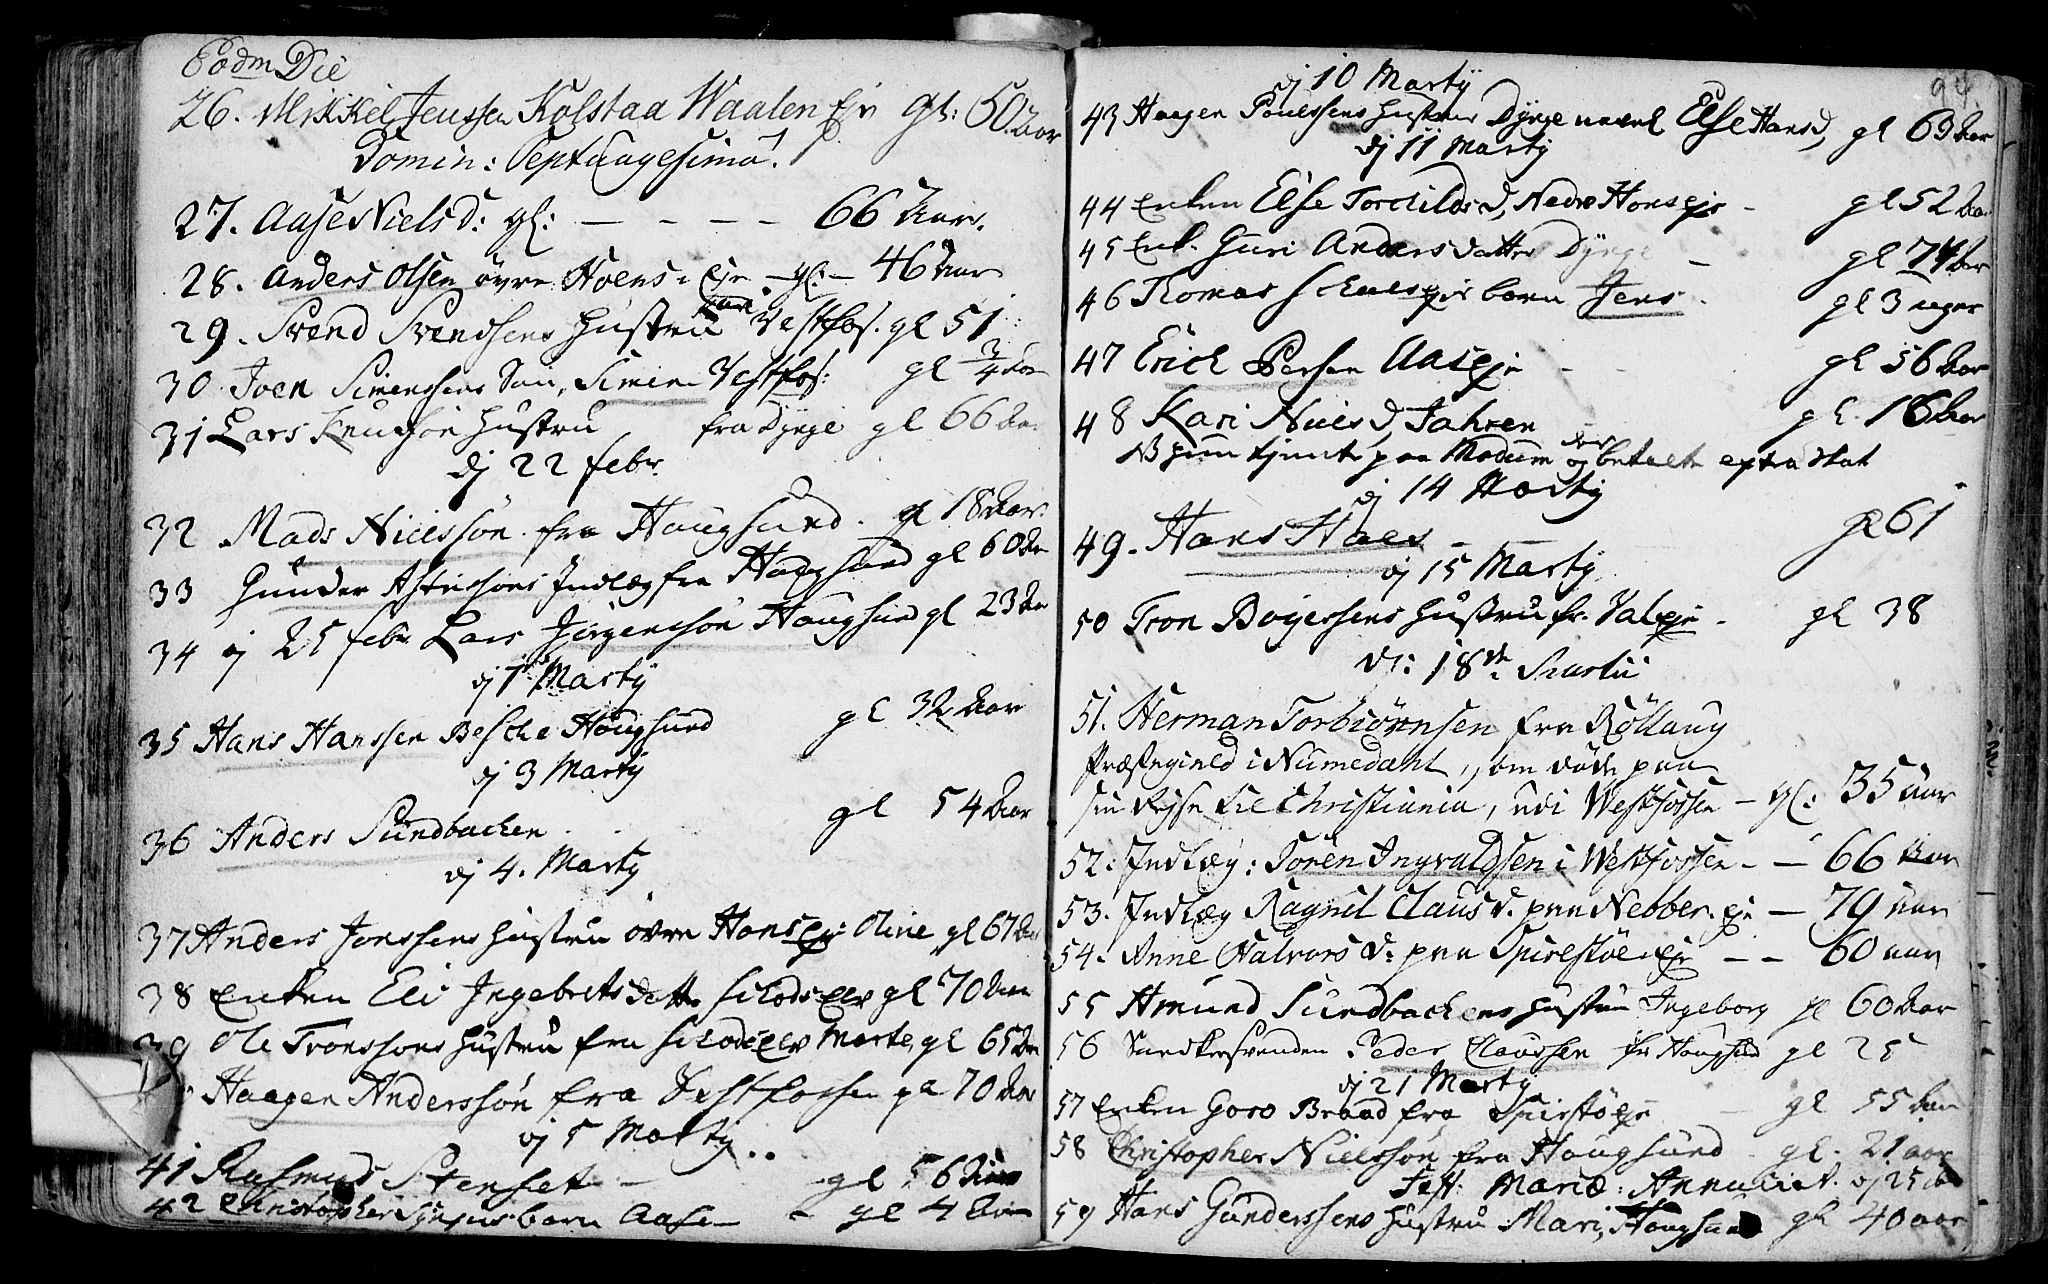 Eodm Die
26. Mikkel Jenssen Kolstaa Waalen Eje gl: 50 Aar
Domin: Septuagesima.
27. Aase Niels D: gl: – – – – 66 Aar.
28. Anders Olsen øvre Hoens Eje – gl: – 46 Aar
29. Svend Svendsens Hustru Vestfos. gl 51
30 Joen Simenssens Søn, Simen Vestfos: gl 3/4 Aar
31 Lars Knudsøn Hustru fra Dynge gl 66 Aar
dj 22 febr.
32 Mads Nielssøn fra Hougsund. gl 18 Aar.
33 Gunder Indlæg fra Hougsund gl 60 Aar
34 dj 25 febr Lars Jørgenssøn Hougsund gl 23 Aar
dj 1 Martij
35 Hans Hanssen Beslke Hougsund gl 32 Aar
dj 3 Martij
36 Anders Sundbachen gl 54 Aar
dj 4. Martij
37 Anders Jonssens Hustru øvre Hons Eje Oline gl 67 Aar
38 Enken Eli Ingebretsdatter gl 70 Aar
39 Ole Tronssons Hustru fra Marte, gl 65 Aar
Haagen Anderssøn fra Vestfossen gl 70 Aar
dj 5 Martij
41 Rasmus Stenset – gl 56 Aar
42 Christopher barn Aase – gl 4 Aar
94.
dj 10 Martij
43 Haagen Poulssens Hustrue Dynge navnl Else Hansd, gl 63 Aar
dj 11 Martij
44 Enken Else Torchildsd, Nedre Hons eje – gl 52 Aar
45 Enk. Guri Andersdatter Dynge – gl 74 Aar
46 Thomas barn Jens gl 3 uger
47 Erich Persen Aas eje gl 56 Aar
48 Kari Nielsd, Jahren gl. 16 Aar
NB hun tjente paa Modum og der betalte extra skat
dj 14 Martij
49. Hans Haes – – gl 61
dj 15 Martij
50 Tron Boyessens Hustru fr. Val eje – gl 38
d: 18de Martii
51. Herman Torbiørnsen fra Rollaug
Præstegield i Numedahl, som døde paa
sin Rejse til Christiania, udi Westfossen – gl: 35 aar
52. Indlæg: Søren Ingvaldsen i Westfossen – – 66 Aar
53. Indlæg Ragnil Clausd. paa Nebber. eje – 79 aar
54. Anne Halvors d: paa Spirestøe eje – – 60 aar
55 Amund Sundbachens Hustru Ingeborg gl 60 Aar
56 Peder Claussen fr Hougsund gl 25
dj 21 Martij
57 Enken Goro Braad fra Spirstø eje gl 55 Aar
58 Christopher Nielssøn fra Hougsund gl. 21 aar
Fest: Mariæ: Annunciat. dj 25
59 Hans Gunderssens Hustru Mari, Hougsund gl 40 aar